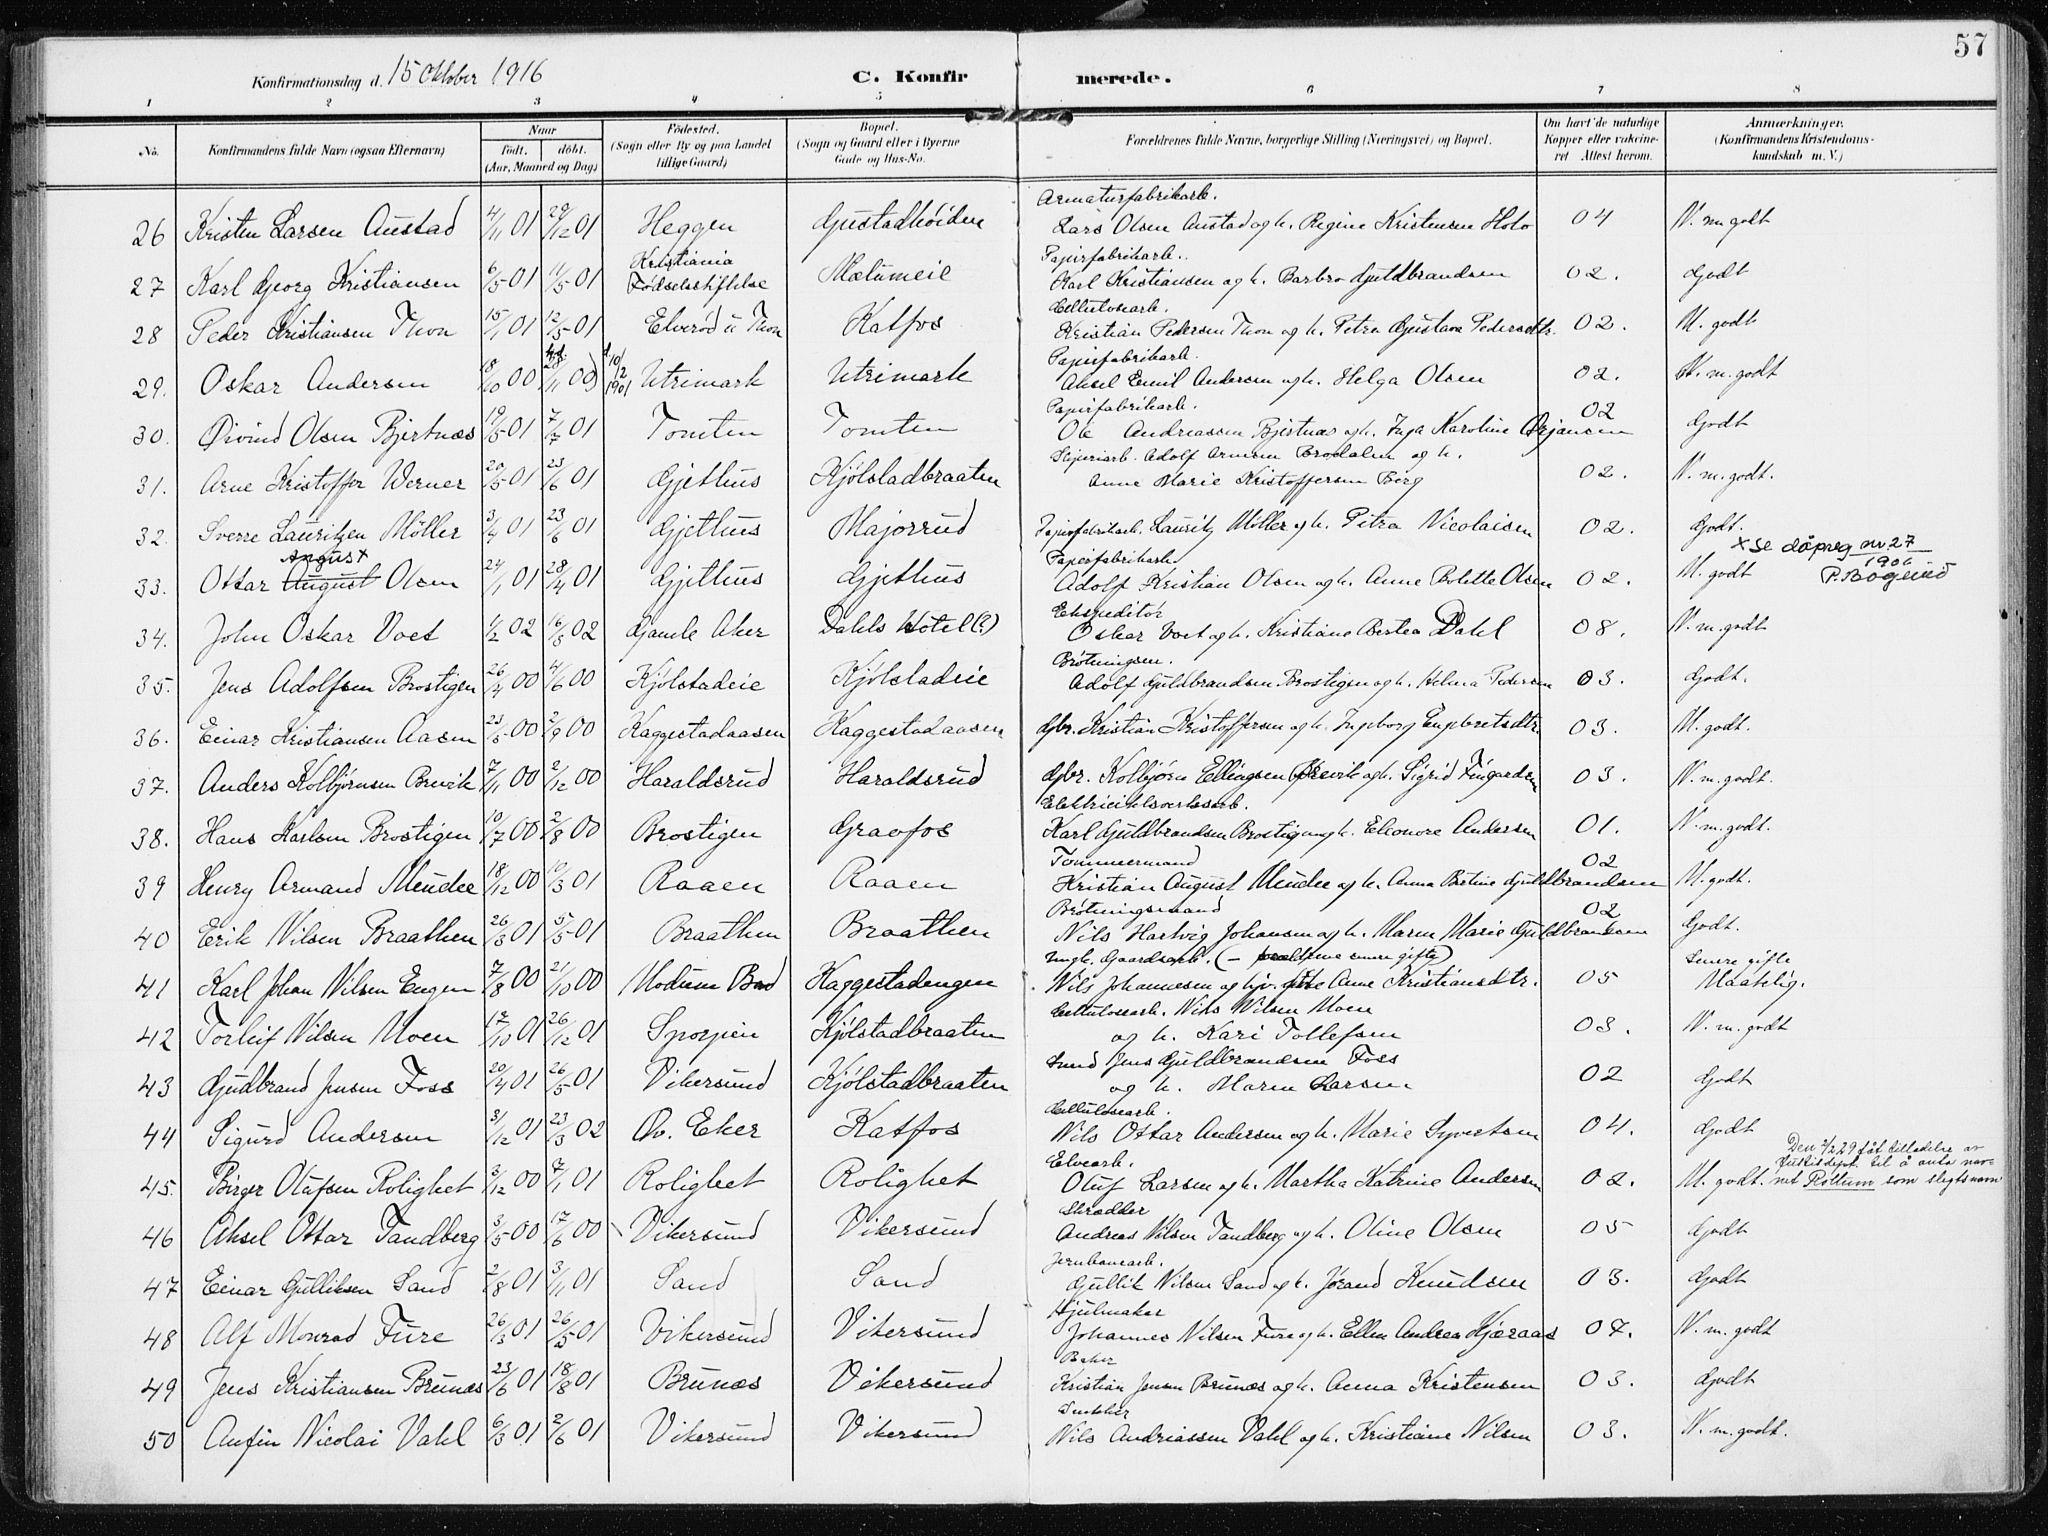 57
Konfirmationsdag d. 15 Oktober 1916 C. Konfirmerede.
1 2 3 4 5 6 7 8
No. Konfirmandens fulde Navn (ogsaa Efternavn) Naar født. døbt. (Aar, Maaned og Dag) Fødested. (Sogn eller By og paa Landet tillige Gaard) Bopæl. (Sogn og Gaard eller i Byerne Gade og Hus-No. Forældrenes fulde Navne, borgerlige Stilling (Næringsvei) og Bopæl. Om havt de naturlige Kopper eller vaksineret Attest herom. Anmærkninger. (Konfirmandens Kristendomskundskab m. V.)
Armaturfabrikarb.
26 Kristen Larsen Austad 4/11 01 29/12 01 Heggen Gustadhøiden Lars Olsen Austad og h. Regine Kristensen Holo 04 N. m. godt
Kristiania Papirfabrikarb.
27 Karl Georg Kristiansen 6/5 01 11/5 01 Fødselsstiftelse Mælumeie Karl Kristiansen og h. Barbro Guldbrandsen 02. Godt
Cellulosearb.
28 Peder Kristiansen Thon 15/1 01 12/5 01 Elverød u Thon Katfos Kristian Pedersen Thon og h. Petra Gustava Pedersdtr. 02. M. godt
Papirfabrikarb.
29. Oskar Andersen 18/10 00 28/11 00) 10/2 1901 Utrimark Utrimark Aksel Emil Andersen og h. Helga Olsen 02. N. m. godt
Papirfabrikarb. 02
30. Øivind Olsen Bjertnæs 19/5 01 7/7 01 Tomten Tomten Ole Andreassen Bjertnæs og h. Inga Karoline Ørjansen Godt
Sliperiarb. Adolf Armann Brodalen og h.
31. Arne Kristoffer Werner 20/5 01 23/6 01 Gjethus Kjølstadbraaten Anne Marie Kristoffersen Berg 02. N. m. godt.
32. Sverre Lauritzen Möller 3/4 01 23/6 01 Gjethus Majorrud Papirfabrikarb. Lauritz Möller og h. Petra Nicolaisen 02. Godt.
August x Papirfabrikarb. x se dåpreg nr. 27 1901
33. Ottar August Olsen 24/1 01 28/4 01 Gjethus Gjethus Adolf Kristian Olsen og h. Anne Bolette Olsen 02. M. godt P. Bogerud
Ekspeditör
34. John Oskar Voet 4/2 02 16/3 02 Gamle Aker Dahls Hotel (?) Oskar Voet og h. Kristiane Bertea Dahl 08. N. m. godt
Brötningsm.
35. Jens Adolfsen Brostigen 26/4 00 4/6 00 Kjölstadeie Kjölstadeie Adolf Guldbrandsen Brostigen og h. Helma Pedersen 03. Godt.
36. Einar Kristiansen Aasen 23/5 00 2/9 00 Kaggestadaasen Kaggestadaasen Gbr. Kristian Kristoffersen og h. Ingeborg Engebretsdtr. 03. M. godt.
37. Anders Kolbjørnsen Brevik 7/11 00 2/12 00 Haraldsrud Haraldsrud Gbr. Kolbjørn Ellingsen Brevik og h. Sigrid Fingarden 03. N. m. godt.
Elektricitetsverksarb.
38. Hans Karlsen Brostigen 10/7 00 2/8 00 Brostigen Gravfos Karl Guldbrandsen Brostigen og h. Eleonore Andersen 01. N. m. godt.
Tömmermand 02
39 Henry Armand Mendee 18/12 00 10/3 01 Raaen Raaen Kristian August Mendee og h. Anna Betine Guldbrandsen M. godt.
Brötningsmand 02
40 Erik Nilsen Braathen 26/3 01 5/5 01 Braathen Braathen Nils Hartvig Johansen og h. Maren Marie Guldbrandsen Godt.
Ungk. Gaardsarb. (— forældrene senere gifte) Senere gifte
41 Karl Johan Nilsen Engen 7/8 00 21/10 00 Modum Bad Kaggestadengen Nils Johannesen og Anne Kristiansdtr. 05 Maatelig.
Cellulosearb. Nils Nilsen Moen
42 Torleif Nilsen Moen 17/10 01 26/12 01 Snorpien Kjölstadbraaten og h. Kari Tollefsen 03. N. m. godt
Smed Jens Guldbrandsen Foss
43 Gudbrand Jensen Foss 20/4 01 26/5 01 Vikersund Kjölstadbraaten og h. Maren Larsen 02 Godt
Cellulosearb.
44 Sigurd Andersen 31/12 01 23/3 02 Øv. Eker Katfos Nils Ottar Andersen og h. Marie Syvertsen 04. Godt
Elvearb. Den 2/2 29 fåt tilladelse av Justisdept. til å anta nav-
45. Birger Olafsen Rolighet 3/12 00 7/1 01 Rolighet Rolighet Oluf Larsen og h. Martha Katrine Andersen 02. M. godt. net Rollum som slegtsnavn
Skrædder
46 Aksel Ottar Tandberg 3/5 00 17/6 00 Vikersund Vikersund Andreas Nilsen Tandberg og h. Oline Olsen 05 Godt
Jernbanearb.
47 Einar Gulliksen Sand 2/8 01 3/11 01 Sand Sand Gullik Nilsen Sand og h. Jörand Knudsen 03. Godt
Hjulmaker
48 Alf Monrad Fure 26/3 01 26/5 01 Vikersund Vikersund Johannes Nilsen Fure og h. Ellen Andrea Kjæraas 07. N. m. godt
Baker
49 Jens Kristiansen Brunæs 23/6 01 18/8 01 Brunæs Vikersund Kristian Jensen Brunæs og h. Anna Kristensen 03. Godt
Snekker
50 Anfin Nicolai Vahl 6/3 01 2/6 01 Vikersund Vikersund Nils Andreassen Vahl og h. Kristiane Nilsen 03. N. m. godt.